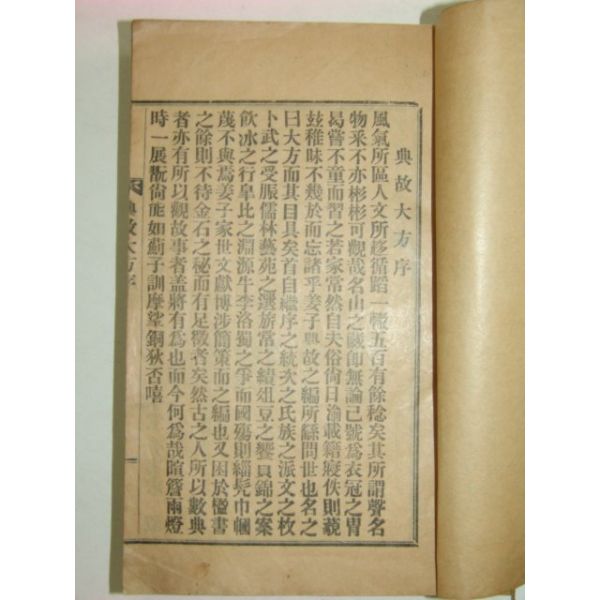 典故大方序
風氣所區人文所趍循蹈一轍五百有餘稔矣其所謂聲名
物釆不亦彬彬可觀哉名山之藏卽無論已號爲衣冠之胄
曷嘗不童而習之若家常然自夫俗尙日渝載籍廢佚則藐
玆稚昧不幾於而忘諸乎姜子典故之編所繇問世也名之
曰大方而其目具矣首自繼序之統次之氏族之派文之枚
卜武之受脤儒林藝苑之選旂常之績俎豆之饗貝錦之案
飮冰之行皐比之淵源牛李洛蜀之爭而國殤則緇髡巾幗
蔑不與焉姜子家世文獻博涉簡策而之編也又囷於楹書
之餘則不待金石之秘而有足徵者矣然古之人所以數典
者亦有所以觀故事者盖將有爲也而今何爲哉暄簷雨燈
時一展翫尙能如薊子訓摩挲銅狄否噫
典故大方序
一